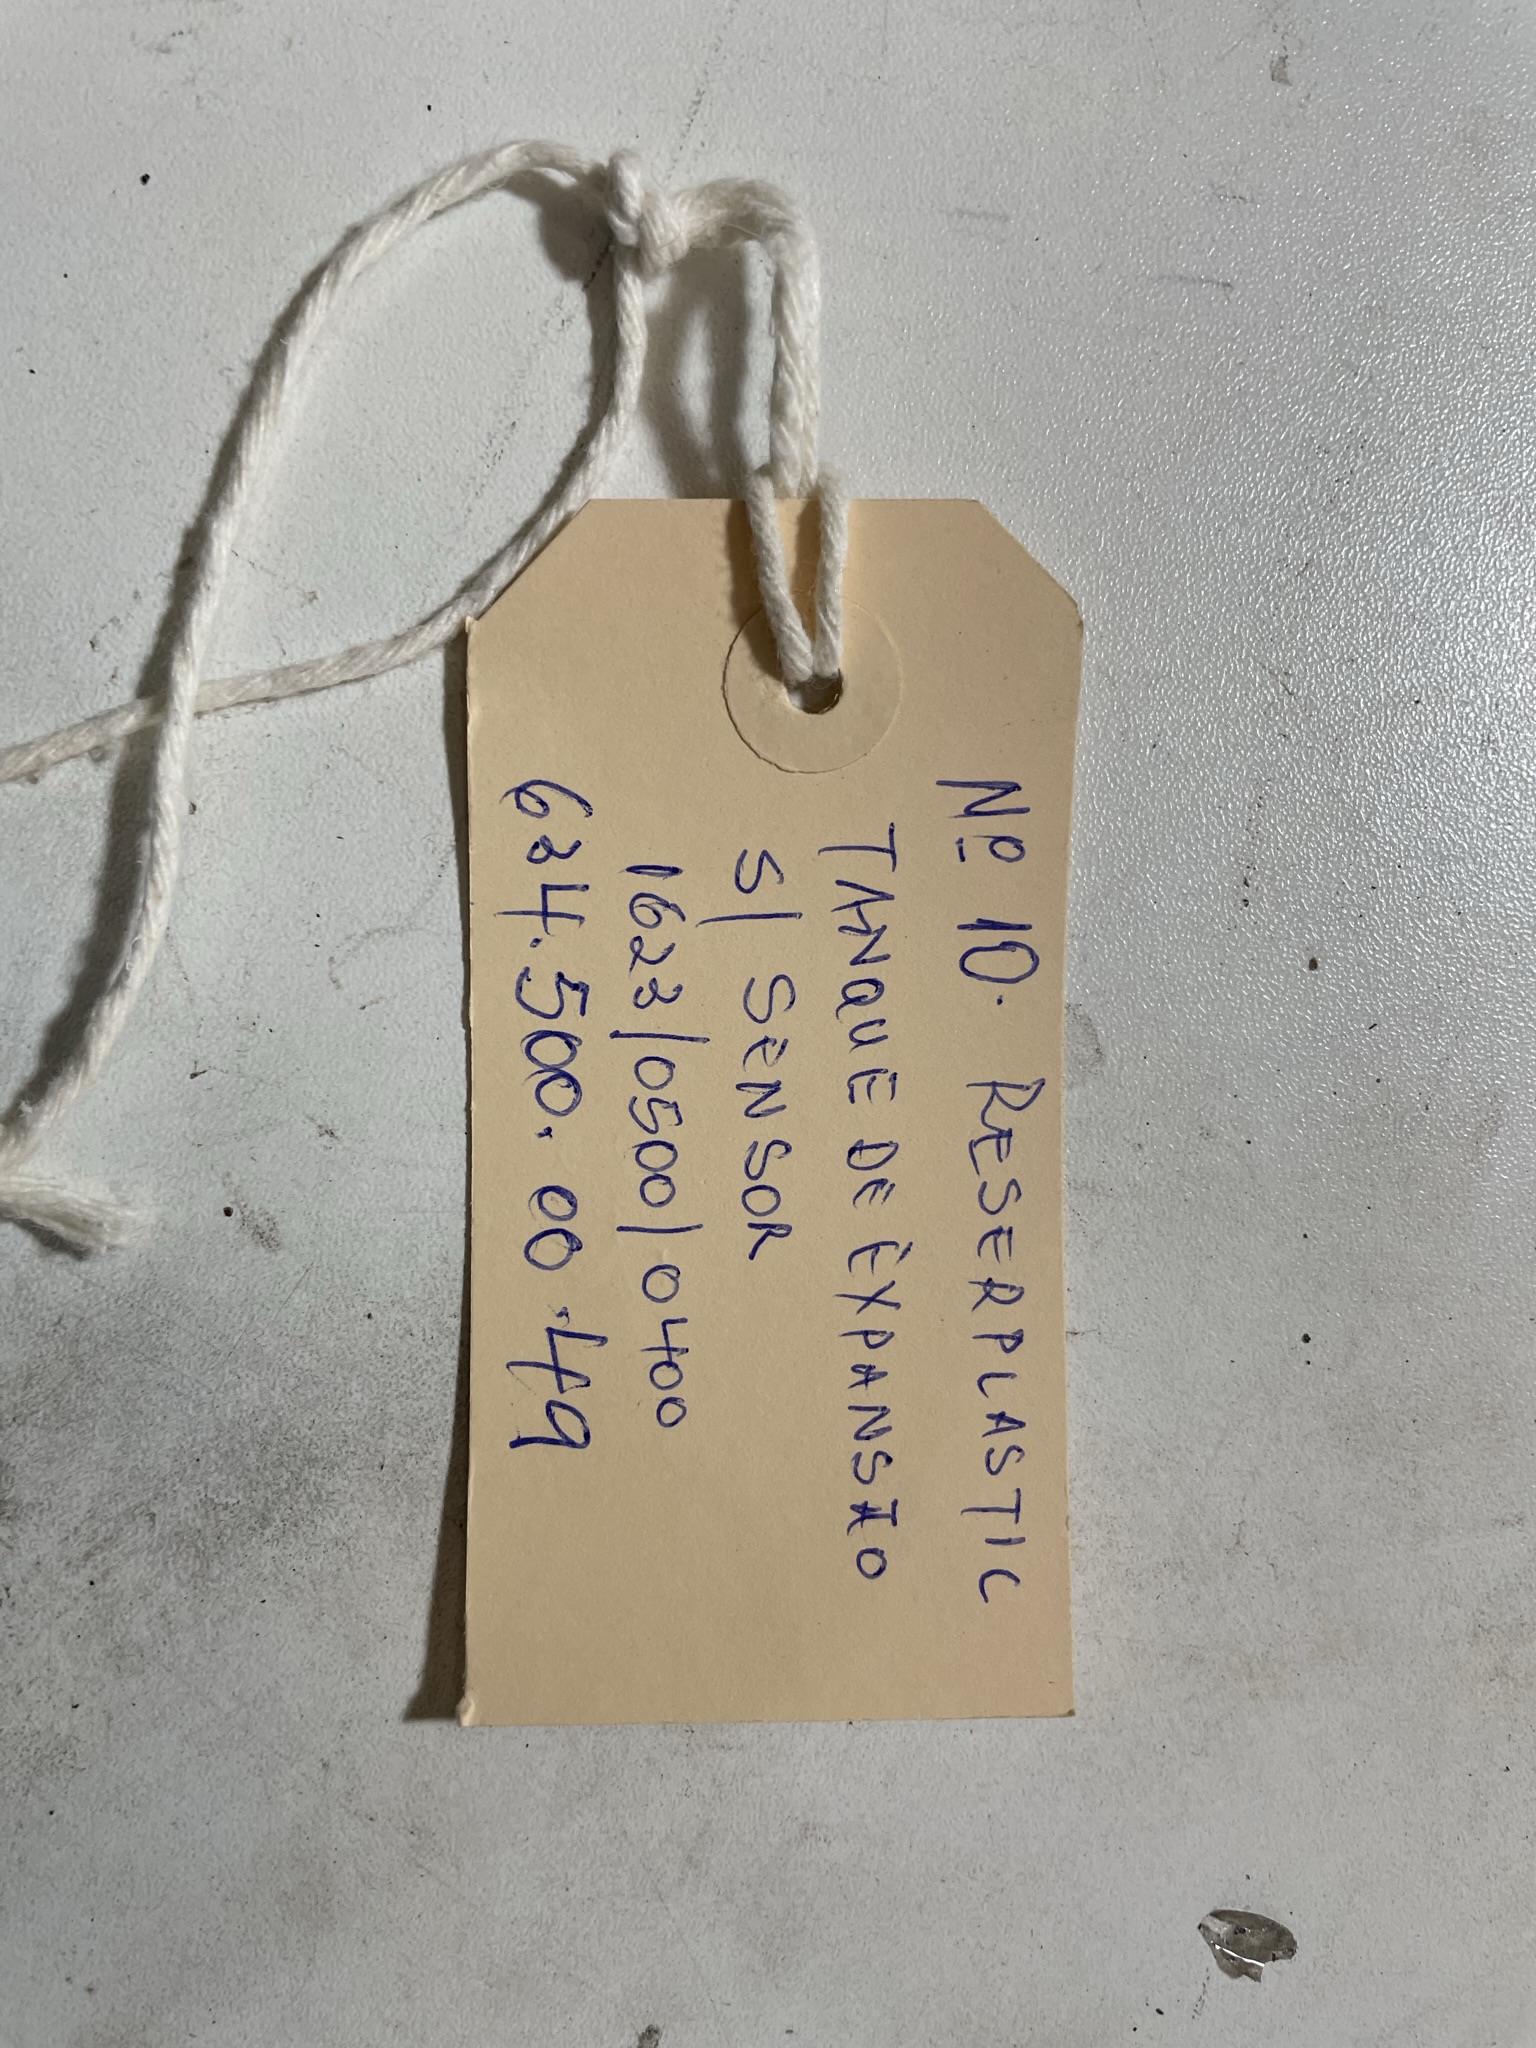 Nº 10. RESERPLASTIC
TANQUE DE EXPANSÃO
S/ SENSOR
1623/0500/0400
634.500.00.49